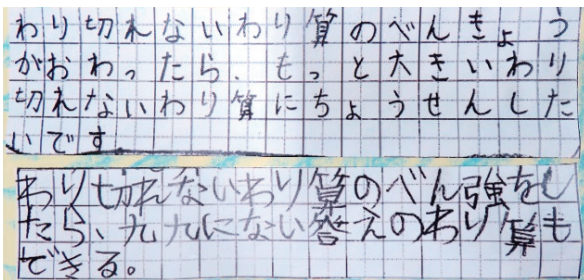 わり切れないわり算のべんきょう
がおわったら、もっと大きいわり
切れないわり算にちょうせんした
いです
わり切れないわり算のべん強をし
たら、九九にない答えのわり算も
できる。